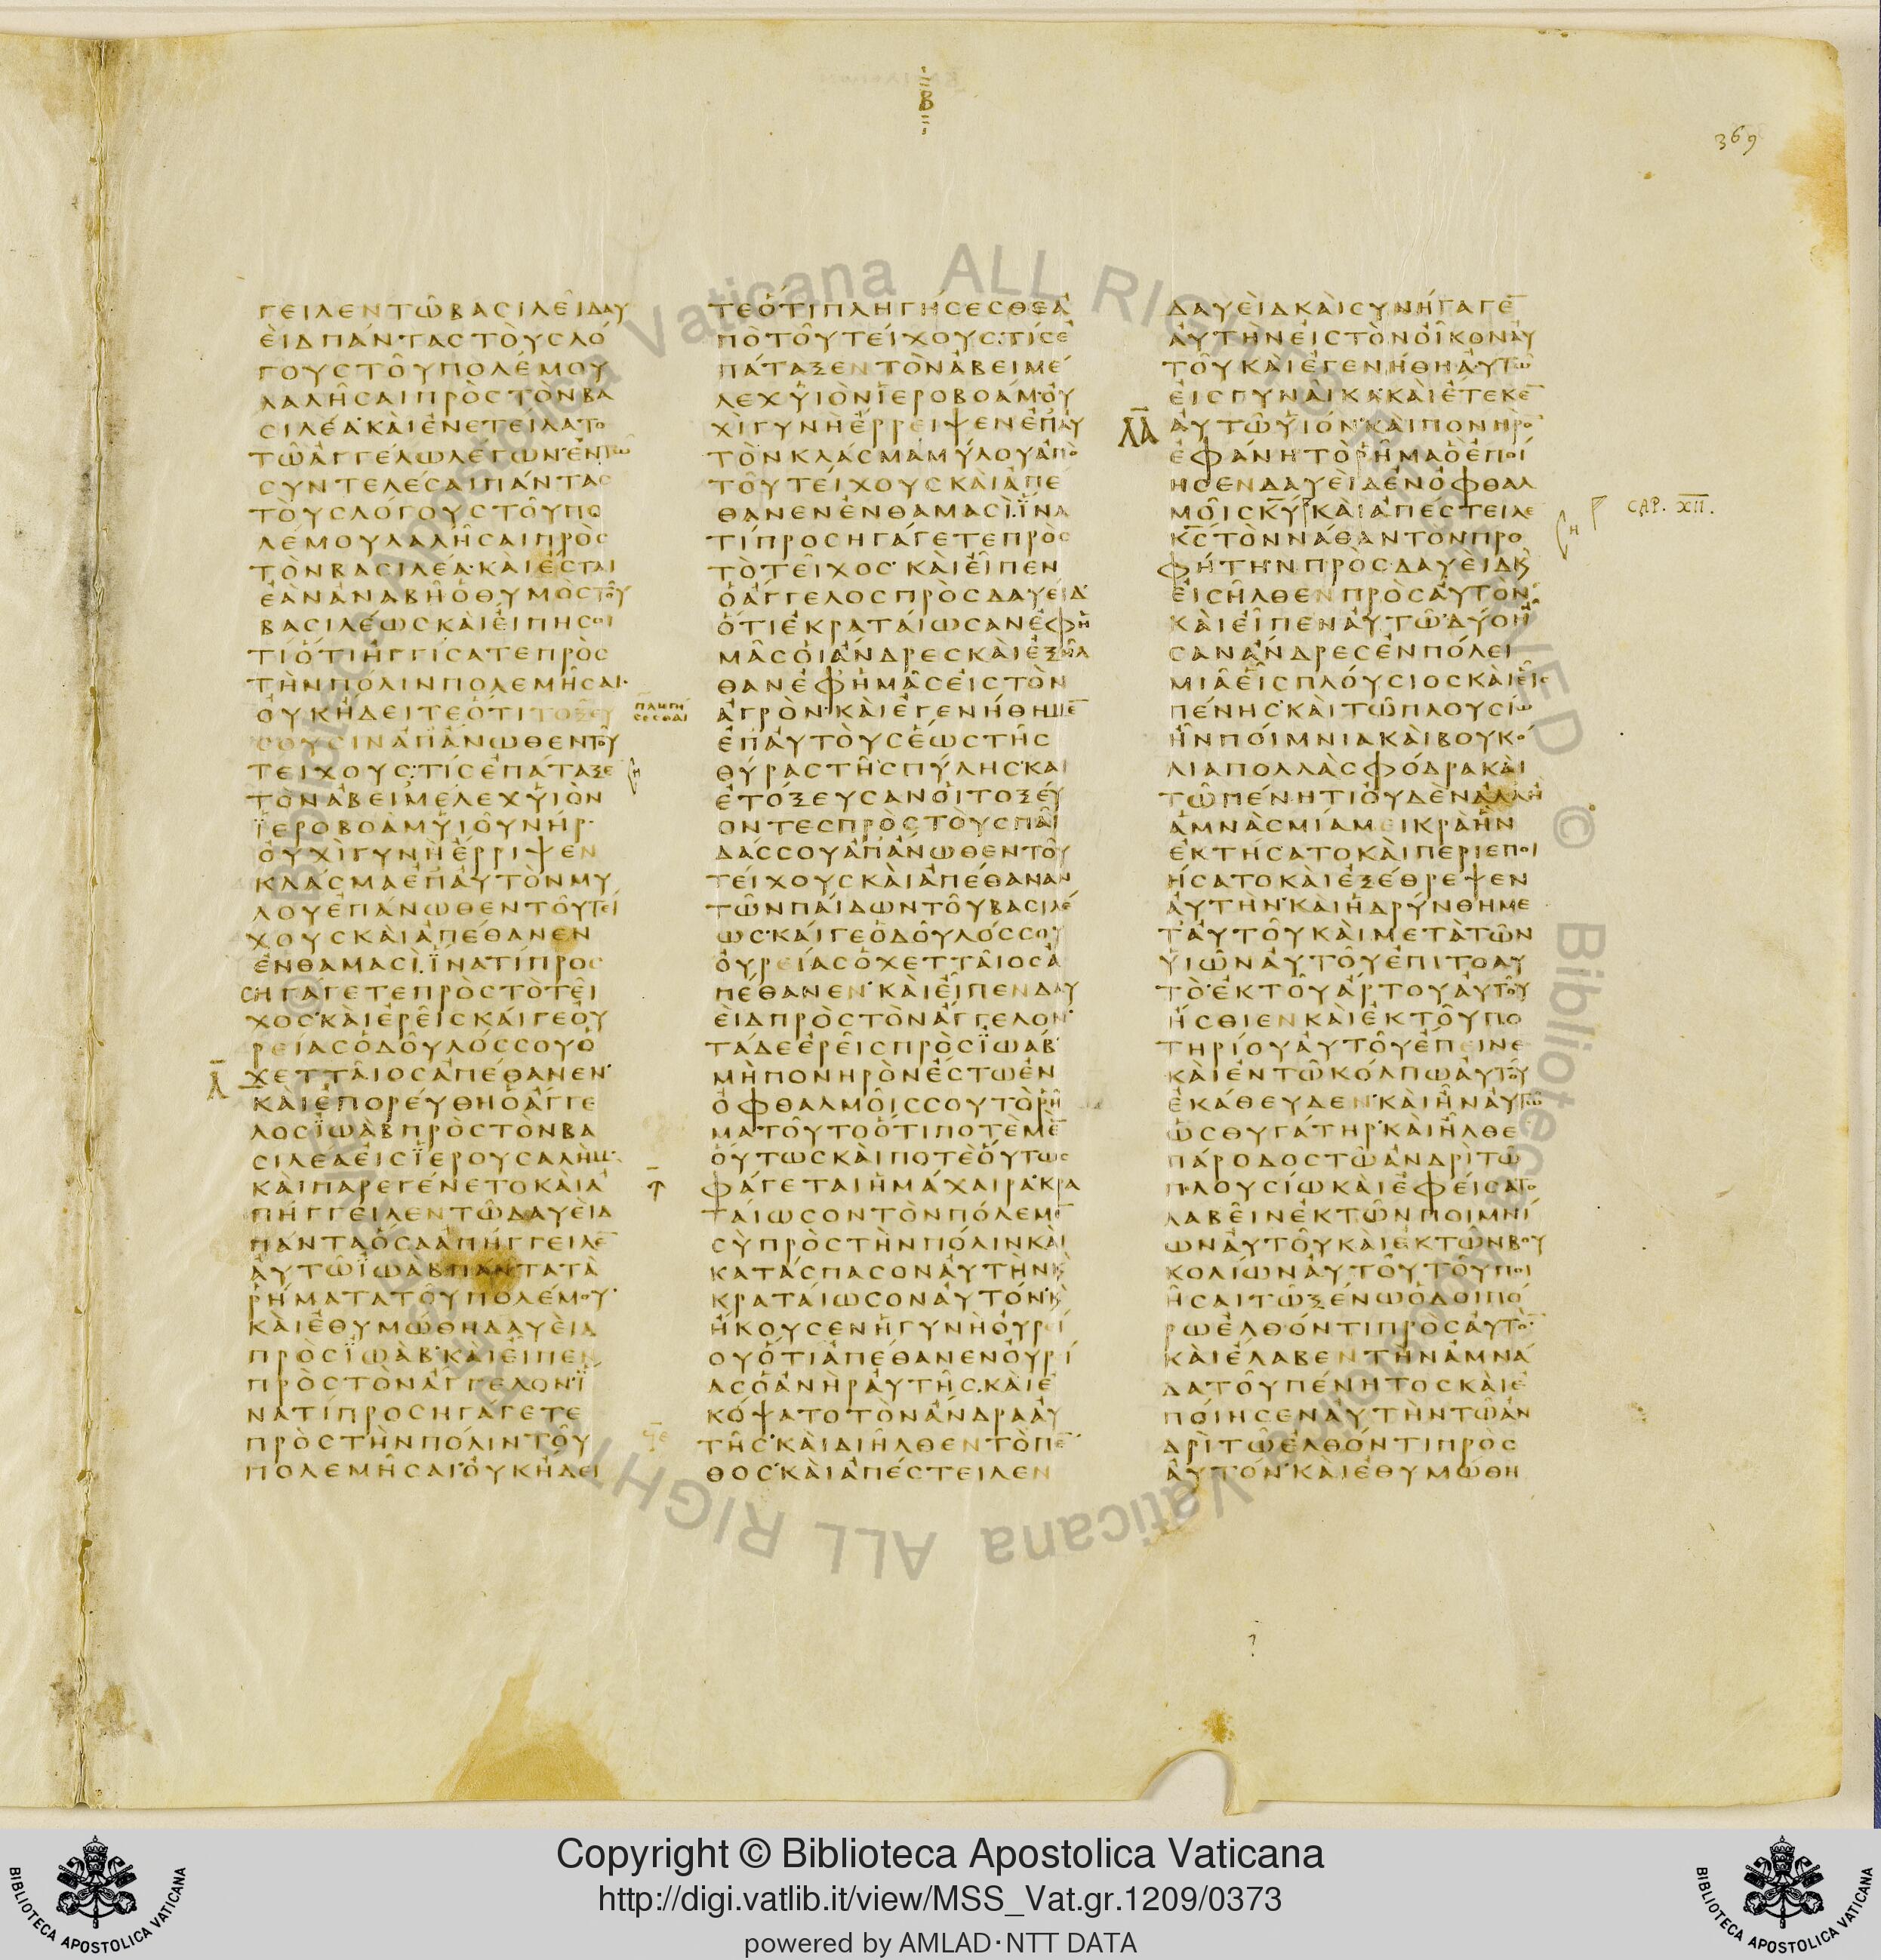 Β
369
ΓΕΙΛΕΝΤΩΒΑΣΙΛΕΙΔΑΥ
ΕΙΔΠΑΝΤΑΣΤΟΥΣΛΟ
ΓΟΥΣΤΟΥΠΟΛΕΜΟΥ
ΛΑΛΗΣΑΙΠΡΟΣΤΟΝΒΑ
ΣΙΛΕΑΚΑΙΕΝΕΤΕΙΛΑΤΟ
ΤΩΑΓΓΕΛΩΛΕΓΩΝΕΝΤΩ
ΣΥΝΤΕΛΕΣΑΙΠΑΝΤΑΣ
ΤΟΥΣΛΟΓΟΥΣΤΟΥΠΟ
ΛΕΜΟΥΛΑΛΗΣΑΙΠΡΟΣ
ΤΟΝΒΑΣΙΛΕΑΚΑΙΕΣΤΑΙ
ΕΑΝΑΝΑΒΗΟΘΥΜΟΣΤΟΥ
ΒΑΣΙΛΕΩΣΚΑΙΕΙΠΗΣΟΙ
ΤΙΟΤΙΗΓΓΙΣΑΤΕΠΡΟΣ
ΤΗΝΠΟΛΙΝΠΟΛΕΜΗΣΑΙ
ΟΥΚΗΔΕΙΤΕΟΤΙΤΟΞΕΥ
ΣΟΥΣΙΝΑΠΑΝΩΘΕΝΤΟΥ
ΤΕΙΧΟΥΣΤΙΣΕΠΑΤΑΞΕ
ΤΟΝΑΒΕΙΜΕΛΕΧΥΙΟΝ
ΙΕΡΟΒΟΑΜΥΙΟΥΝΗΡ
ΟΥΧΙΓΥΝΗΕΡΡΙΨΕΝ
ΚΛΑΣΜΑΕΠΑΥΤΟΝΜΥ
ΛΟΥΕΠΑΝΩΘΕΝΤΟΥΤΕΙ
ΧΟΥΣΚΑΙΑΠΕΘΑΝΕΝ
ΕΝΘΑΜΑΣΙΙΝΑΤΙΠΡΟΣ
ΗΓΑΓΕΤΕΠΡΟΣΤΟΤΕΙ
ΧΟΣΚΑΙΕΡΕΙΣΚΑΙΓΕΟΥ
ΡΕΙΑΣΟΔΟΥΛΟΣΣΟΥΟ
ΧΕΤΤΑΙΟΣΑΠΕΘΑΝΕΝ
ΚΑΙΕΠΟΡΕΥΘΗΟΑΓΓΕ
ΛΟΣΙΩΑΒΠΡΟΣΤΟΝΒΑ
ΣΙΛΕΑΕΙΣΙΕΡΟΥΣΑΛΗΜ
ΚΑΙΠΑΡΕΓΕΝΕΤΟΚΑΙΑ
ΠΗΓΓΕΙΛΕΝΤΩΔΑΥΕΙΔ
ΠΑΝΤΑΟΣΑΑΠΗΓΓΕΙΛΕ̅
ΑΥΤΩΙΩΑΒΠΑΝΤΑΤΑ
ΡΗΜΑΤΑΤΟΥΠΟΛΕΜΟΥ
ΚΑΙΕΘΥΜΩΘΗΔΑΥΕΙΔ
ΠΡΟΣΙΩΑΒΚΑΙΕΙΠΕΝ
ΠΡΟΣΤΟΝΑΓΓΕΛΟΝΙ
ΝΑΤΙΠΡΟΣΗΓΑΓΕΤΕ
ΠΡΟΣΤΗΝΠΟΛΙΝΤΟΥ
ΠΟΛΕΜΗΣΑΙΟΥΚΗΔΕΙ
Λ̅
ΠΛΗΓΗ
ΣΕΣΘΑΙ
ΤΕΟΤΙΠΛΗΓΗΣΕΣΘΕΑ
ΠΟΤΟΥΤΕΙΧΟΥΣΤΙΣΕ
ΠΑΤΑΞΕΝΤΟΝΑΒΕΙΜΕ
ΛΕΧΥΙΟΝΙΕΡΟΒΟΑΜΟΥ
ΧΙΓΥΝΗΕΡΡΕΙΨΕΝΕΠΑΥ
ΤΟΝΚΛΑΣΜΑΜΥΛΟΥΑΠΟ
ΤΟΥΤΕΙΧΟΥΣΚΑΙΑΠΕ
ΘΑΝΕΝΕΝΘΑΜΑΣΙΙΝΑ
ΤΙΠΡΟΣΗΓΑΓΕΤΕΠΡΟΣ
ΤΟΤΕΙΧΟΣΚΑΙΕΙΠΕΝ
ΟΑΓΓΕΛΟΣΠΡΟΣΔΑΥΕΙΔ
ΟΤΙΕΚΡΑΤΑΙΩΣΑΝΕΦΗ
ΜΑΣΟΙΑΝΔΡΕΣΚΑΙΕΞΗΛ
ΘΑΝΕΦΗΜΑΣΕΙΣΤΟΝ
ΑΓΡΟΝΚΑΙΕΓΕΝΗΘΗΜΕ̅
ΕΠΑΥΤΟΥΣΕΩΣΤΗΣ
ΘΥΡΑΣΤΗΣΠΥΛΗΣΚΑΙ
ΕΤΟΞΕΥΣΑΝΟΙΤΟΞΕΥ
ΟΝΤΕΣΠΡΟΣΤΟΥΣΠΑΙ
ΔΑΣΣΟΥΑΠΑΝΩΘΕΝΤΟΥ
ΤΕΙΧΟΥΣΚΑΙΑΠΕΘΑΝΑΝ
ΤΩΝΠΑΙΔΩΝΤΟΥΒΑΣΙΛΕ
ΩΣΚΑΙΓΕΟΔΟΥΛΟΣΣΟΥ
ΟΥΡΕΙΑΣΟΧΕΤΤΑΙΟΣΑ
ΠΕΘΑΝΕΝΚΑΙΕΙΠΕΝΔΑΥ
ΕΙΔΠΡΟΣΤΟΝΑΓΓΕΛΟΝ
ΤΑΔΕΕΡΕΙΣΠΡΟΣΙΩΑΒ
ΜΗΠΟΝΗΡΟΝΕΣΤΩΕΝ
ΟΦΘΑΛΜΟΙΣΣΟΥΤΟΡΗ
ΜΑΤΟΥΤΟΟΤΙΠΟΤΕΜΕ̅
ΟΥΤΩΣΚΑΙΠΟΤΕΟΥΤΩΣ
ΦΑΓΕΤΑΙΗΜΑΧΑΙΡΑΚΡΑ
ΤΑΙΩΣΟΝΤΟΝΠΟΛΕΜΟ̅
ΣΥΠΡΟΣΤΗΝΠΟΛΙΝΚΑΙ
ΚΑΤΑΣΠΑΣΟΝΑΥΤΗΝΚ
ΚΡΑΤΑΙΩΣΟΝΑΥΤΟΝΚ
ΗΚΟΥΣΕΝΗΓΥΝΗΟΥΡΕΙ
ΟΥΟΤΙΑΠΕΘΑΝΕΝΟΥΡΙ
ΑΣΟΑΝΗΡΑΥΤΗΣΚΑΙΕ
ΚΟΨΑΤΟΤΟΝΑΝΔΡΑΑΥ
ΤΗΣΚΑΙΔΙΗΛΘΕΝΤΟΠΕ̅
ΘΟΣΚΑΙΑΠΕΣΤΕΙΛΕΝ
ΔΑΥΕΙΔΚΑΙΣΥΝΗΓΑΓΕ̅
ΑΥΤΗΝΕΙΣΤΟΝΟΙΚΟΝΑΥ
ΤΟΥΚΑΙΕΓΕΝΗΘΗΑΥΤΩ
ΕΙΣΓΥΝΑΙΚΑΚΑΙΕΤΕΚΕ̅
ΑΥΤΩΥΙΟΝΚΑΙΠΟΝΗΡΟ̅
ΕΦΑΝΗΤΟΡΗΜΑΟΕΠΟΙ
ΗΣΕΝΔΑΥΕΙΔΕΝΟΦΘΑΛ
ΜΟΙΣΚ̅Υ̅ΚΑΙΑΠΕΣΤΕΙΛΕ
Κ̅Σ̅ΤΟΝΝΑΘΑΝΤΟΝΠΡΟ
ΦΗΤΗΝΠΡΟΣΔΑΥΕΙΔΚ
ΕΙΣΗΛΘΕΝΠΡΟΣΑΥΤΟΝ
ΚΑΙΕΙΠΕΝΑΥΤΩΔΥΟΗ
ΣΑΝΑΝΔΡΕΣΕΝΠΟΛΕΙ
ΜΙΑΕΙΣΠΛΟΥΣΙΟΣΚΑΙΕΙΣ
ΠΕΝΗΣΚΑΙΤΩΠΛΟΥΣΙΩ
ΗΝΠΟΙΜΝΙΑΚΑΙΒΟΥΚΟ
ΛΙΑΠΟΛΛΑΣΦΟΔΡΑΚΑΙ
ΤΩΠΕΝΗΤΙΟΥΔΕΝΑΛΛΗ
ΑΜΝΑΣΜΙΑΜΕΙΚΡΑΗΝ
ΕΚΤΗΣΑΤΟΚΑΙΠΕΡΙΕΠΟΙ
ΗΣΑΤΟΚΑΙΕΞΕΘΡΕΨΕΝ
ΑΥΤΗΝΚΑΙΗΔΡΥΝΘΗΜΕ
ΤΑΥΤΟΥΚΑΙΜΕΤΑΤΩΝ
ΥΙΩΝΑΥΤΟΥΕΠΙΤΟΑΥ
ΤΟΕΚΤΟΥΑΡΤΟΥΑΥΤΟΥ
ΗΣΘΙΕΝΚΑΙΕΚΤΟΥΠΟ
ΤΗΡΙΟΥΑΥΤΟΥΕΠΕΙΝΕ
ΚΑΙΕΝΤΩΚΟΛΠΩΑΥΤΟΥ
ΕΚΑΘΕΥΔΕΝΚΑΙΗΝΑΥΤΩ
ΩΣΘΥΓΑΤΗΡΚΑΙΗΛΘΕ
ΠΑΡΟΔΟΣΤΩΑΝΔΡΙΤΩ
ΠΛΟΥΣΙΩΚΑΙΕΦΕΙΣΑΤΟ
ΛΑΒΕΙΝΕΚΤΩΝΠΟΙΜΝΙ
ΩΝΑΥΤΟΥΚΑΙΕΚΤΩΝΒΟΥ
ΚΟΛΙΩΝΑΥΤΟΥΤΟΥΠΟΙ
ΗΣΑΙΤΩΞΕΝΩΟΔΟΙΠΟ
ΡΩΕΛΘΟΝΤΙΠΡΟΣΑΥΤΟ̅
ΚΑΙΕΛΑΒΕΝΤΗΝΑΜΝΑ
ΔΑΤΟΥΠΕΝΗΤΟΣΚΑΙΕ
ΠΟΙΗΣΕΝΑΥΤΗΝΤΩΑΝ
ΔΡΙΤΩΕΛΘΟΝΤΙΠΡΟΣ
ΑΥΤΟΝΚΑΙΕΘΥΜΩΘΗ
Λ̅Α̅
CAP. XII.
Copyright © Biblioteca Apostolica Vaticana
http://digi.vatlib.it/view/MSS_Vat.gr.1209/0373
powered by AMLAD·NTT DATA
BIBLIOTECA APOSTOLICA VATICANA
BIBLIOTECA APOSTOLICA VATICANA